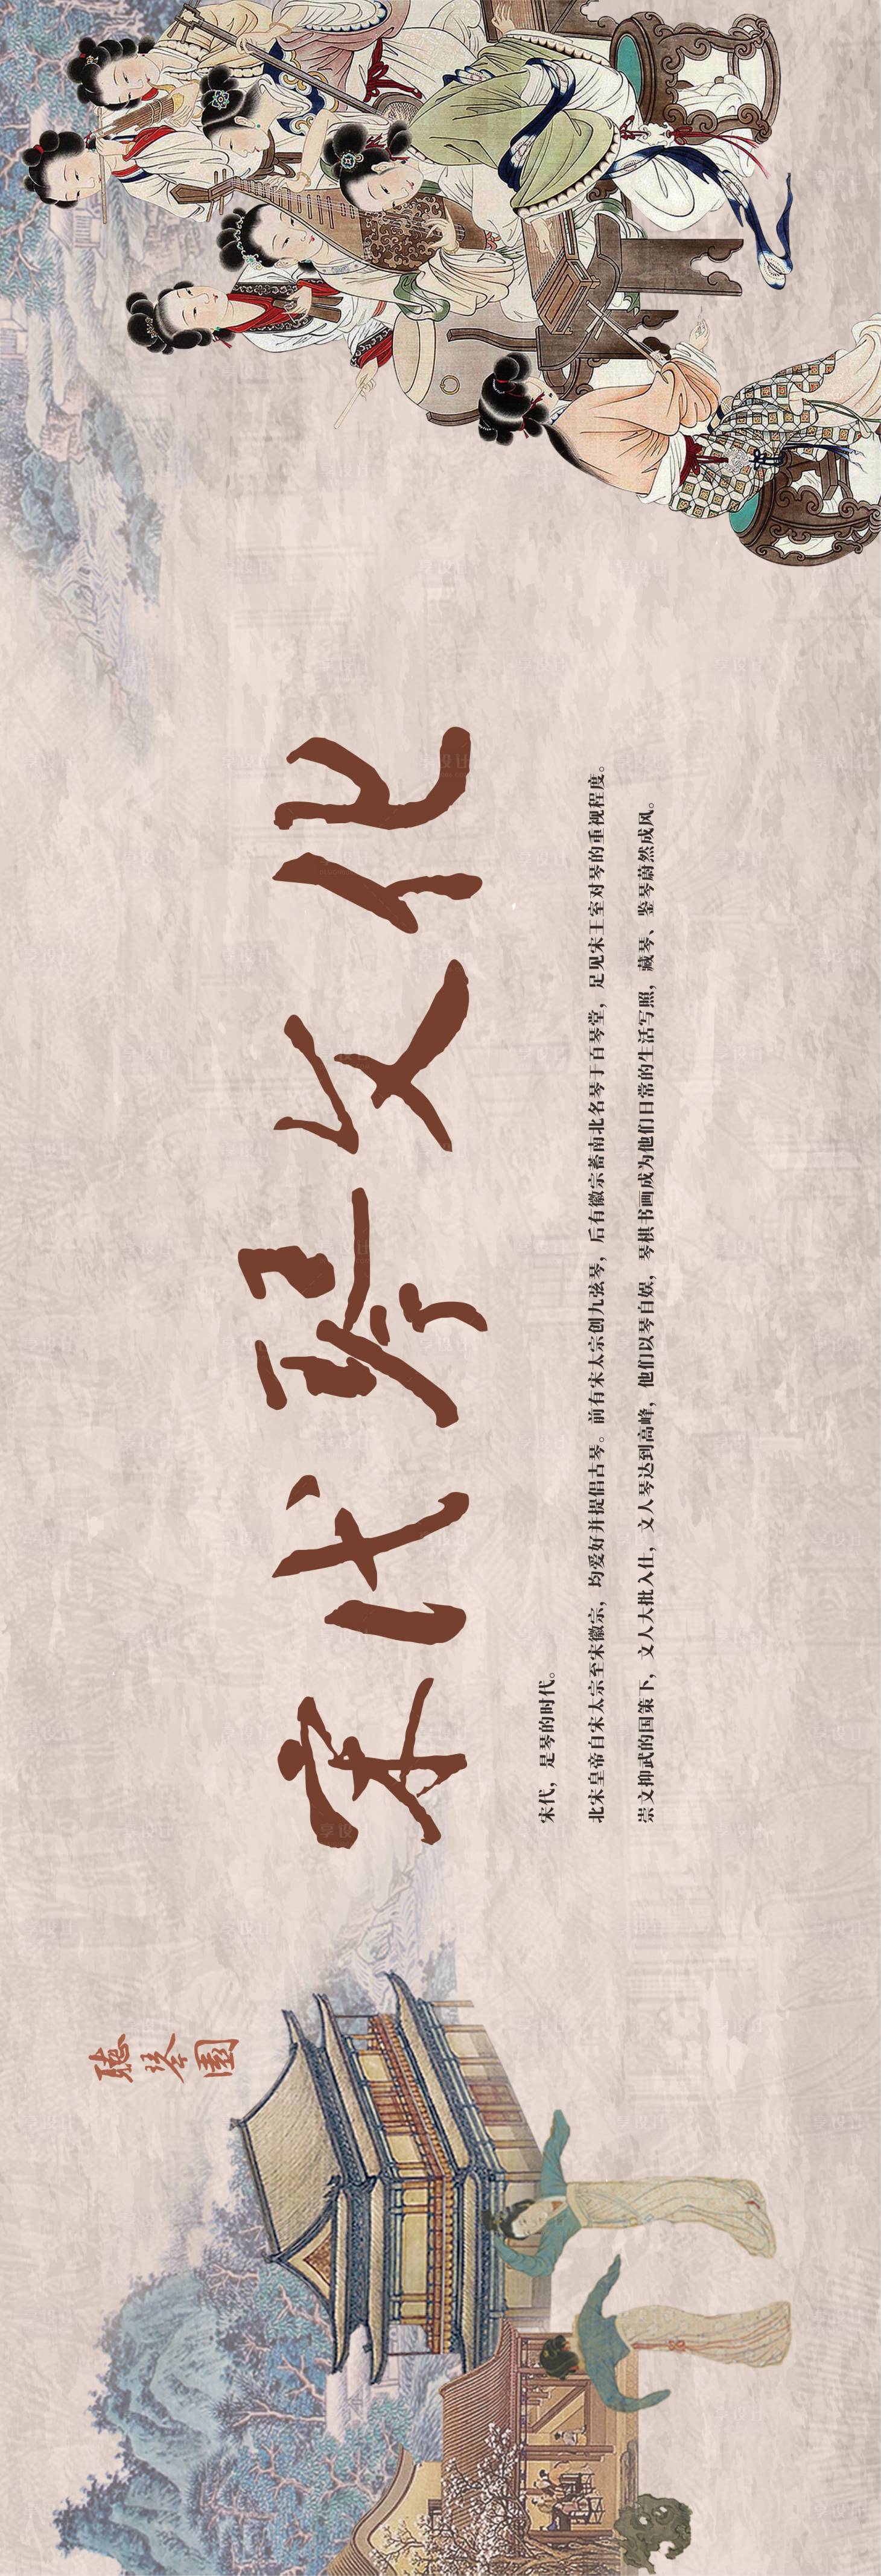 聽琴圖
宋代琴文化
宋代，是琴的时代。
北宋皇帝自宋太宗至宋徽宗，均爱好并提倡古琴。前有宋太宗创九弦琴，后有徽宗蓄南北名琴于百琴堂，足见宋王室对琴的重视程度。
崇文抑武的国策下，文人大批入仕，文人琴达到高峰，他们以琴自娱，琴棋书画成为他们日常的生活写照，藏琴、鉴琴蔚然成风。